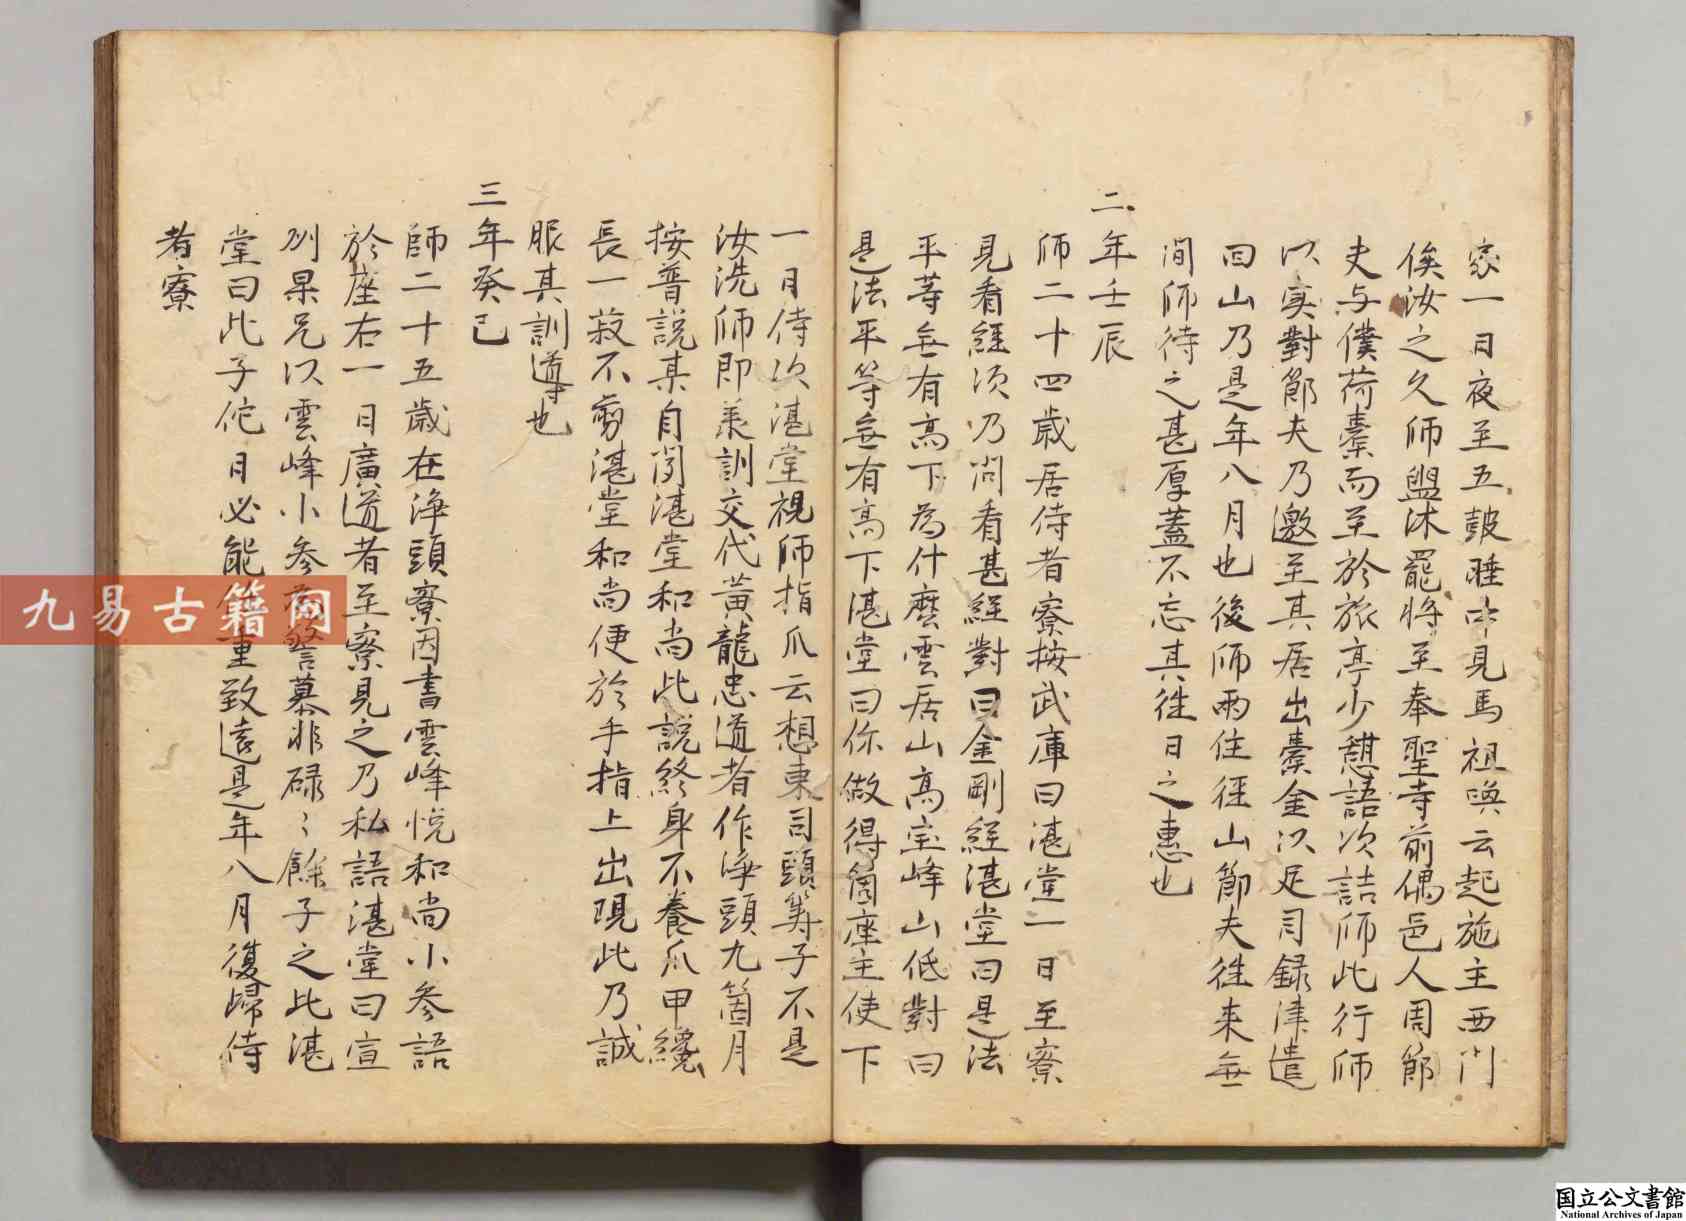 家一日夜至五鼓睡中見馬祖喚云起施主西門
俟汝之久師盥沐罷將至奉聖寺前偶邑人周節
夫与僕荷橐而至於旅亭少憩語次詰師此行師
以実對節夫乃邀至其居出橐金以足司録津遣
回山乃是年八月也後師兩住徑山節夫徃来無
間師待之甚厚蓋不忘其徃日之惠也
二年壬辰
師二十四歳居侍者寮按武庫曰湛堂一日至寮
見看經次乃問看甚經對曰金剛經湛堂曰是法
平等無有高下為什麼雲居山高宝峰山低對曰
是法平等無有高下湛堂曰你做得箇座主使下
一日侍次湛堂視師指爪云想東司頭筹子不是
汝洗師即羕訓交代黃龍忠道者作淨頭九箇月
按普説某自聞湛堂和尚此説終身不養爪甲纔
長一菽不剪湛堂和尚便於手指上出現此乃誠
服其訓導也
三年癸巳
師二十五歳在淨頭寮因書雲峰悅和尚小参語
於座右一日廣道者至寮見之乃私語湛堂曰宣
州杲兄以雲峰小参為警慕非碌〻餘子之比湛
堂曰此子佗日必能重致遠是年八月復歸侍
者寮
九易古籍网
国立公文書館
National Archives of Japan